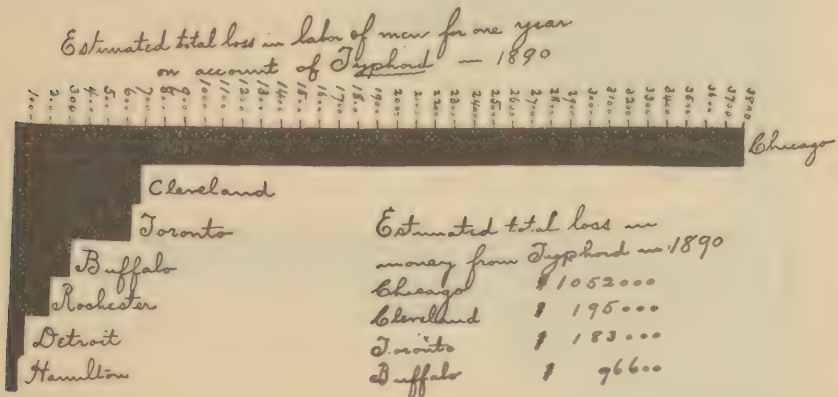 Estimated total loss in labor of men for one year
on account of Typhord — 1890
100 200 300 400 500 600 700 800 900 1000 1100 1200 1300 1400 1500 1600 1700 1800 1900 2000 2100 2200 2300 2400 2500 2600 2700 2800 2900 3000 3100 3200 3300 3400 3500 3600 3700 3800
Chicago
Cleveland
Toronto
Buffalo
Rochester
Detroit
Hamilton
Estimated total loss in
money from Typhord in 1890
Chicago $1052000
Cleveland $ 195000
Toronto $ 183000
Buffalo $ 96600